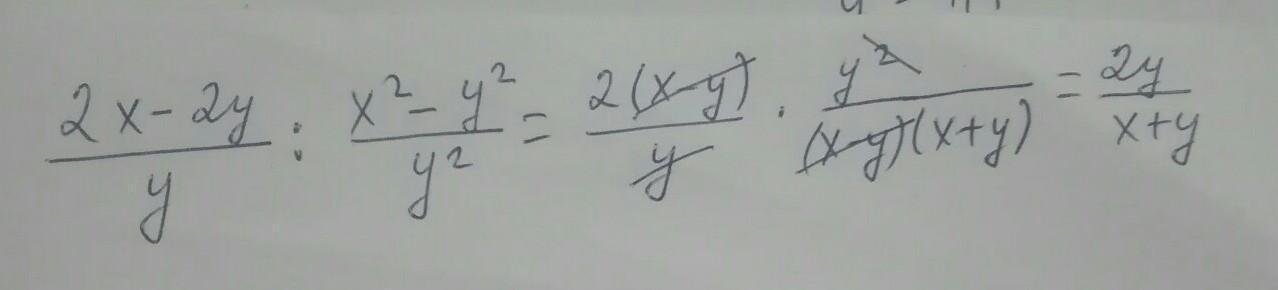 (2x-2y)/y : (x²-y²)/y² = 2(x-y)/y · y²/((x-y)(x+y)) = 2y/(x+y)